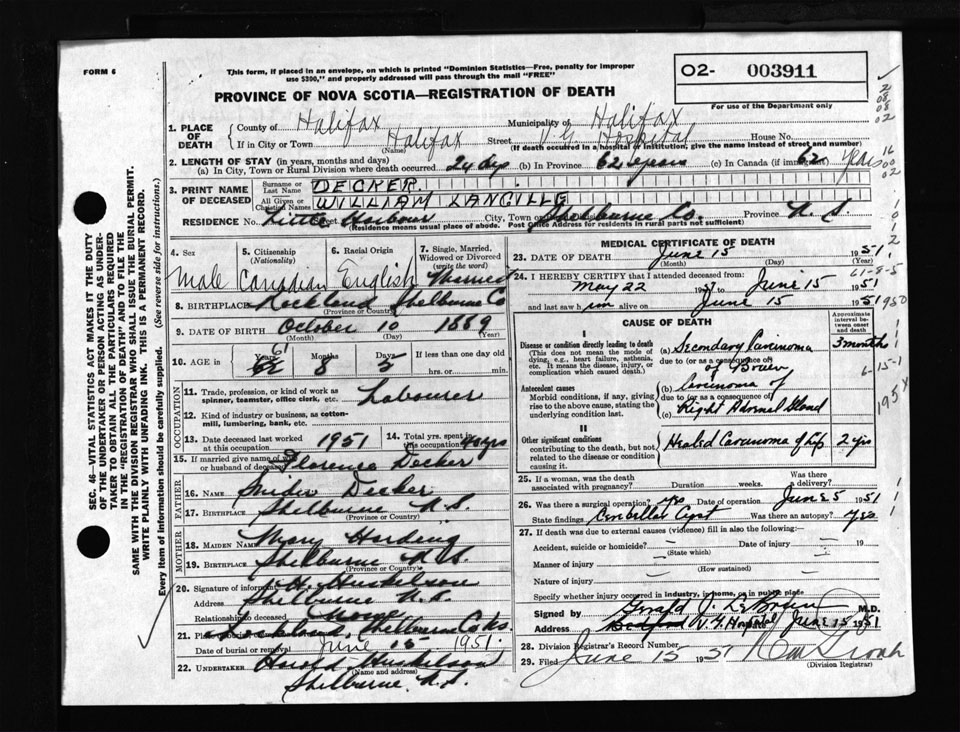 FORM 6
This form, if placed in an envelope, on which is printed "Dominion Statistics—Free, penalty for improper
use $300," and properly addressed will pass through the mail "FREE"
O2- 003911
For use of the Department only
PROVINCE OF NOVA SCOTIA—REGISTRATION OF DEATH
1. PLACE OF DEATH
County of Halifax Municipality of Halifax
If in City or Town Halifax Street V.G. Hospital House No.
(Name) (If death occurred in a hospital or institution, give the name instead of street and number)
2. LENGTH OF STAY (in years, months and days)
(a) In City, Town or Rural Division where death occurred 24 dys (b) In Province 62 years (c) In Canada (if immigrant) 62 years
3. PRINT NAME OF DECEASED
Surname or Last Name DECKER
All Given or Christian Names WILLIAM LANGILLE
RESIDENCE No. Little Harbour Street City, Town or Shelburne Co. Province N.S.
(Residence means usual place of abode. Post Office Address for residents in rural parts not sufficient)
4. Sex Male
5. Citizenship (Nationality) Canadian
6. Racial Origin English
7. Single, Married, Widowed or Divorced (write the word) Married
8. BIRTHPLACE Rockland Shelburne Co
(Province or Country)
9. DATE OF BIRTH October 10 1889
(Month) (Day) (Year)
10. AGE in Years 61 Months 8 Days 5 If less than one day old
hrs. or min.
OCCUPATION
11. Trade, profession, or kind of work as spinner, teamster, office clerk, etc. Labourer
12. Kind of industry or business, as cotton-mill, lumbering, bank, etc.
13. Date deceased last worked at this occupation 1951
14. Total yrs. spent in this occupation 40 yrs
15. If married give name of wife or husband of deceased Florence Decker
FATHER
16. Name Decker
17. BIRTHPLACE Shelburne N.S.
(Province or Country)
MOTHER
18. MAIDEN NAME Mary Harding
19. BIRTHPLACE Shelburne N.S.
(Province or Country)
20. Signature of informant H. Huskilson
Address Shelburne N.S.
Relationship to deceased None
21. Place of burial Rockland, Shelburne Co NS
Date of burial or removal June 15 1951.
22. UNDERTAKER Harold Huskilson
(Name and address)
Shelburne N.S.
MEDICAL CERTIFICATE OF DEATH
23. DATE OF DEATH June 15 1951
(Month) (Day) (Year)
24. I HEREBY CERTIFY that I attended deceased from
May 22 1951 to June 15 1951
and last saw him alive on June 15 1951
CAUSE OF DEATH
Approximate interval between onset and death
I
Disease or condition directly leading to death
(This does not mean the mode of dying, e.g., heart failure, asthenia, etc. It means the disease, injury, or complication which caused death.)
(a) Secondary Carcinoma 3 months
due to (or as a consequence of)
of Brain
Antecedent causes
Morbid conditions, if any, giving rise to the above cause, stating the underlying condition last.
(b) Carcinoma of
due to (or as a consequence of)
(c) Right Adrenal Gland
II
Other significant conditions
contributing to the death, but not related to the disease or condition causing it.
Healed Carcinoma of Lip 2 yrs
25. If a woman, was the death associated with pregnancy? Duration weeks. Was there a delivery?
26. Was there a surgical operation? yes Date of operation June 5 1951
State findings Cerebellar Cyst Was there an autopsy? Yes
27. If death was due to external causes (violence) fill in also the following:—
Accident, suicide or homicide? — Date of injury — 19
(State which)
Manner of injury —
(How sustained)
Nature of injury —
Specify whether injury occurred in industry, in home, or in public place
Signed by Gerald M.D.
Address V.G. Hospital June 15 1951
28. Division Registrar's Record Number
29. Filed June 15 1951
(Division Registrar)
SEC. 46—VITAL STATISTICS ACT MAKES IT THE DUTY
OF THE UNDERTAKER OR PERSON ACTING AS UNDER-
TAKER TO OBTAIN ALL THE PARTICULARS REQUIRED
IN THE "REGISTRATION OF DEATH" AND TO FILE THE
SAME WITH THE DIVISION REGISTRAR WHO SHALL ISSUE THE BURIAL PERMIT.
WRITE PLAINLY WITH UNFADING INK. THIS IS A PERMANENT RECORD.
Every item of information should be carefully supplied. (See reverse side for instructions.)
61-8-5
1950
6-15-1